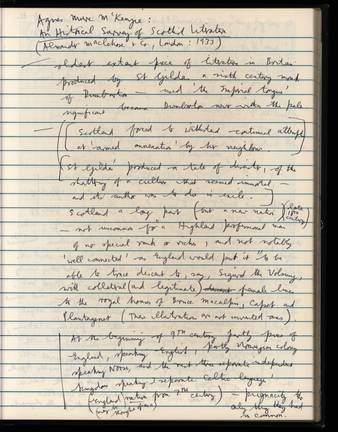 Agnes Mure McKenzie:
An Historical Survey of Scottish Literature
(Alexander Maclehose & Co, London: 1933)
— oldest extant piece of literature in Britain
produced by St Gildas a sixth century monk
of Dumbarton — used 'the Imperial tongue'
significant because Dumbarton now within the pale
— [Scotland forced to withstand continued attempts
at 'armed annexation' by her neighbour.]
[St Gildas' produced a tale of disaster, of the
shattering of a culture that seemed immortal —
and its author was to die in exile.]
Scotland a long past (but a new nation) (late 18th century)
— not uncommon for a Highland professional man
of no special rank or riches, and not notably
'well connected' as England would put it to be
able to trace descent to, say, Sigurd the Volsung,
with collateral (and legitimate) female lines
to the royal houses of Bruce Macalpin, Capet and
Plantagenet (These illustrations are not invented ones).
At the beginning of 9th century partly piece of
England, speaking English, partly Norwegian colony
speaking Norse, and the rest three separate independent
kingdoms speaking 3 separate Celtic languages.
(England nation from 7th century) — pugnacity the
only thing they had
in common.